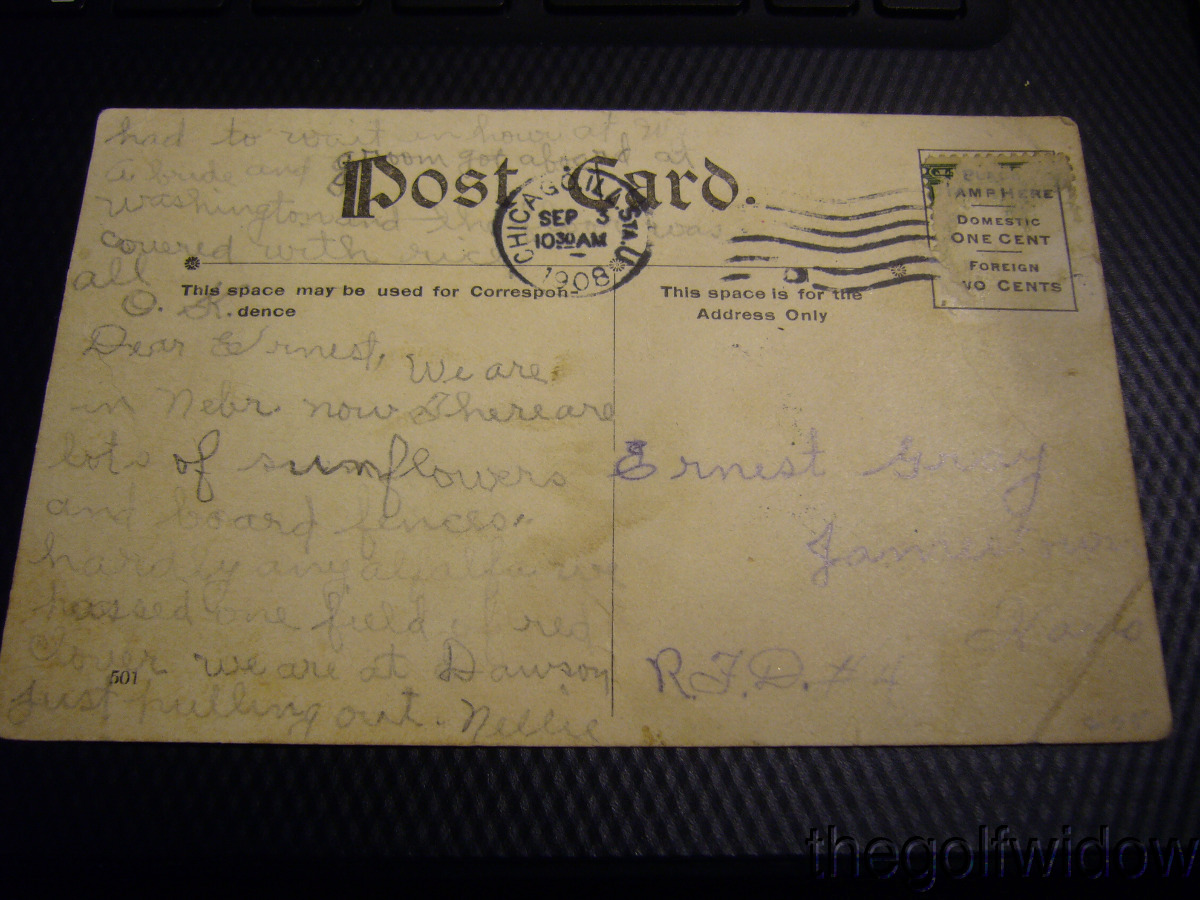 had to wait an hour at W
A bride and groom got aboard at
Washington and the was
covered with rice
all
O. K.
Post Card.
CHICAGO, ILL. STA. U
SEP 3
10 30 AM
1908
AMP HERE
DOMESTIC
ONE CENT
FOREIGN
WO CENTS
This space may be used for Correspon-
dence
This space is for the
Address Only
Dear Ernest,
We are
in Nebr. now There are
lots of sunflowers
and board fences.
hardly any alfalfa we
passed one field of red
Clover we are at Dawson
just pulling out. Nellie
501
Ernest Gray
Jamestown
Kans
R.F.D. #4
thegolfwidow